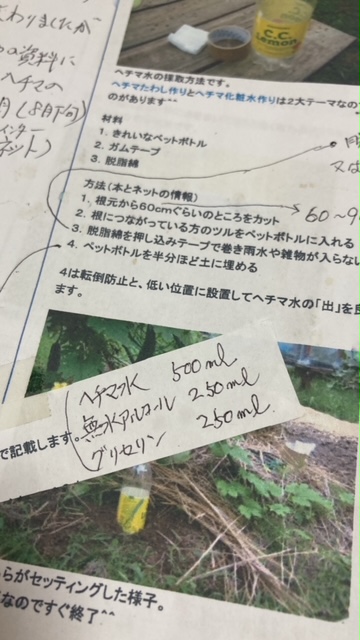 わりましたが
の資料に
ヘチマの
月(8月下旬)
インター
ネット)
C.C.
Lemon
ヘチマ水の採取方法です。
ヘチマたわし作りとヘチマ化粧水作りは2大テーマなの
のがあります^^
材料
1. きれいなペットボトル
2. ガムテープ
3. 脱脂綿
又は
方法(本とネットの情報)
1. 根元から60cmぐらいのところをカット
60~9
2. 根につながっている方のツルをペットボトルに入れる
3. 脱脂綿を押し込みテープで巻き雨水や雑物が入らない
4. ペットボトルを半分ほど土に埋める
4は転倒防止と、低い位置に設置してヘチマ水の「出」を良
ます。
ヘチマ水 500ml
無水アルコール 250ml
グリセリン 250ml.
で記載します。
らがセッティングした様子。
なのですぐ終了^^